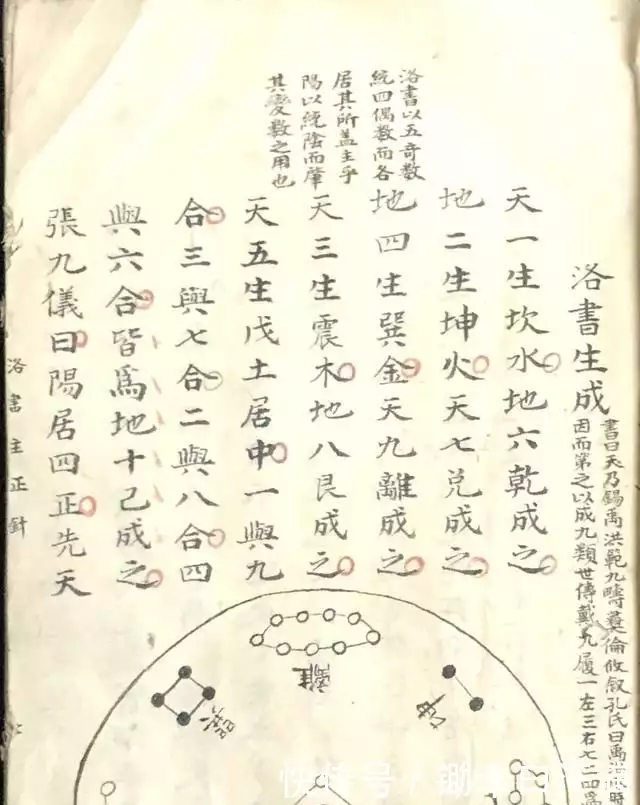 洛書生成
書曰天乃錫禹洪範九疇彝倫攸敘孔氏曰禹
因而第之以成九類世傳戴九履一左三右七二四爲
天一生坎水地六乾成之
地二生坤火天七兌成之
地四生巽金天九離成之
天三生震木地八艮成之
天五生戊土居中一與九
合三與七合二與八合四
與六合皆爲地十己成之
張九儀曰陽居四正先天
洛書以五奇數
統四偶數而各
居其所蓋主乎
陽以統陰而肇
其變數之用也
洛書主正針
離
巽
坤
快传号